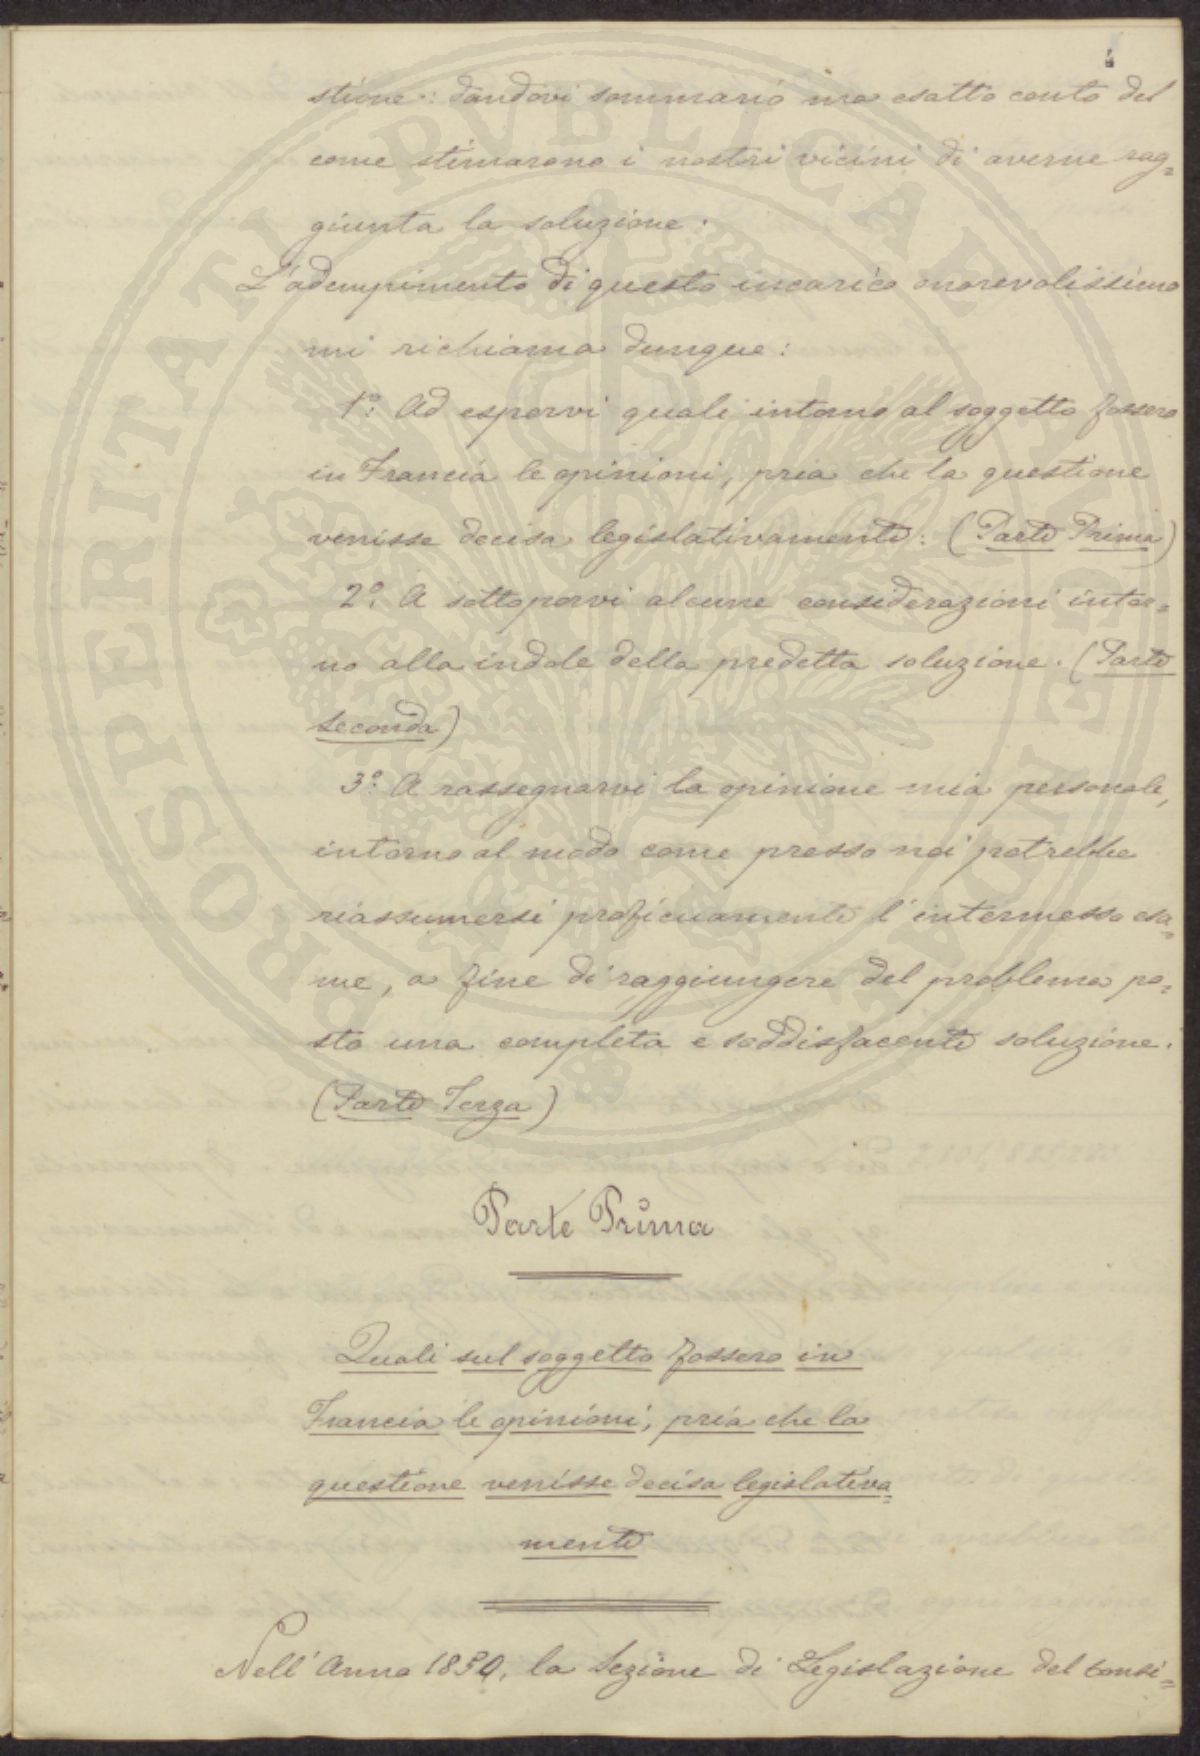 stione: dandovi sommario ma esatto conto del
come stimarono i nostri vicini di averne rag=
giunta la soluzione.
L'adempimento di questo incarico onorevolissimo
mi richiama dunque:
1º: Ad esporvi quali intorno al soggetto fossero
in Francia le opinioni, pria che la questione
venisse decisa legislativamente: (Parte Prima)
2º: A sottoporvi alcune considerazioni intor=
no alla indole della predetta soluzione. (Parte
Seconda)
3º: A rassegnarvi la opinione mia personale,
intorno al modo come presso noi potrebbe
riassumersi proficuamente l'intermesso esa=
me, a fine di raggiungere del problema po=
sto una completa e soddisfacente soluzione.
(Parte Terza)
Parte Prima
Quali sul soggetto fossero in
Francia le opinioni, pria che la
questione venisse decisa legislativa=
mente
Nell'Anno 1850, la Sezione di Legislazione del Consi=
PROSPERITATI PVBLICAE AVGENDAE